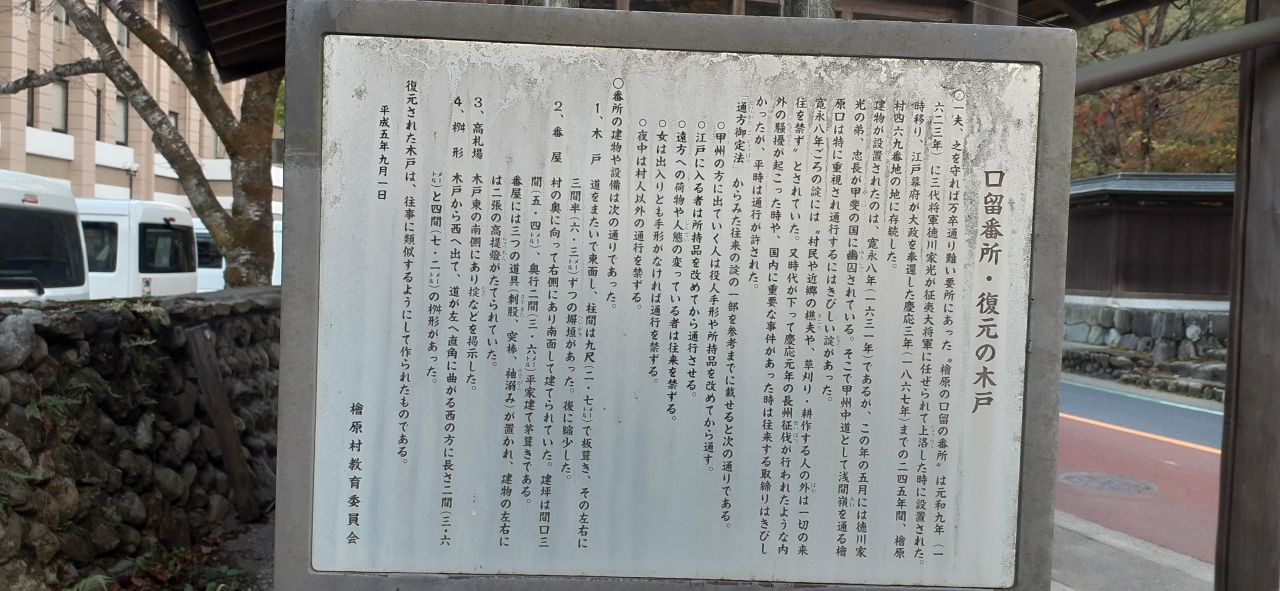 口留番所・復元の木戸
○一夫、之を守れば万卒通り難い要所にあった〝檜原の口留の番所〟は元和九年（一
六二三年）に三代将軍徳川家光が征夷大将軍に任ぜられて上洛した時に設置された。
時移り、江戸幕府が大政を奉還した慶応三年（一八六七年）までの二四五年間、檜原
村四六九番地の地に存続した。
建物が設置されたのは、寛永八年（一六三一年）であるが、この年の五月には徳川家
光の弟、忠長が甲斐の国に幽囚されている。そこで甲州中道として浅間嶺を通る檜
原口は特に重視され通行するにはきびしい掟があった。
寛永八年ごろの掟には〝村民や近郷の樵夫や、草刈り・耕作する人の外は一切の来
往を禁ず〟とされていた。又時代が下って慶応元年の長州征伐が行われたような内
外の騒擾が起こった時や、国内に重要な事件があった時は往来する取締りはきびし
かったが、平時は通行が許された。
「通方御定法」からみた往来の掟の一部を参考までに載せると次の通りである。
○甲州の方に出ていく人は役人手形や所持品を改めてから通す。
○江戸に入る者は所持品を改めてから通行させる。
○遠方への荷物や人態の変っている者は往来を禁ずる。
○女は出入りとも手形がなければ通行を禁ずる。
○夜中は村人以外の通行を禁ずる。
○番所の建物や設備は次の通りであった。
1、木戸　道をまたいで東面し、柱間は九尺（二・七メートル）で板葺き、その左右に
三間半（六・三メートル）ずつの堀垣があった。後に縮少した。
2、番屋　村の奥に向って右側にあり南面して建てられていた。建坪は間口三
間（五・四メートル）、奥行二間（三・六メートル）平家建て茅葺きである。
番屋には三つの道具（刺股、突棒、袖溺み）が置かれ、建物の左右に
は二張の高提燈がたてられていた。
3、高札場　木戸東の南側にあり掟などを掲示した。
4、桝形　木戸から西へ出て、道が左へ直角に曲がる西の方に長さ二間（三・六
メートル）と四間（七・二メートル）の桝形があった。
復元された木戸は、往事に類似するようにして作られたものである。
平成五年九月一日
檜原村教育委員会